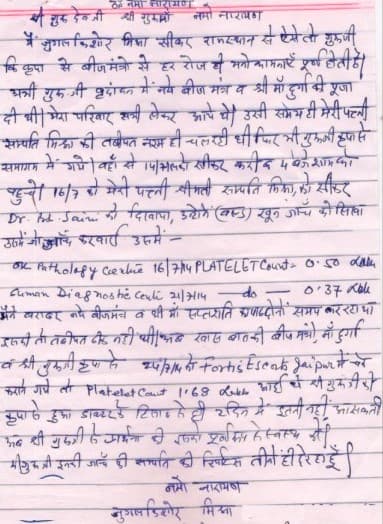 ॐ नमो नारायण
श्री गुरुदेवजी श्री गुरुमाँ नमो नारायण
मैं जुगल किशोर मिश्रा सीकर राजस्थान से ऐसे तो गुरुजी
कि कृपा से बीजमंत्रो से हर रोज ही मनोकामनाएँ पूर्ण होती हैं
श्री गुरुजी में नये बीज मंत्र व श्री माँ दुर्गा की पूजा
दी थी। मेरा परिवार सभी लेकर आये थे। उसी समय ही मेरी पत्नी
सम्पति मिश्रा की तबीयत नरम ही चल रही थी फिर श्री गुरुजी कृपा से
समागम में गये। वहाँ से 14/7 सीकर करीब 4 बजे शाम को
पहुचे। 16/7 को मेरी पत्नी श्रीमती सम्पति मिश्रा को सीकर
Dr. Jain को दिखाया, उन्होंने (ब्लड) खून जाँच को लिखा
उसमें जो जाँच करवाई उसमें -
Pathology Centre 16/7/14 PLATELET Count = 0.50 Lakh
Human Diagnostic Centre 21/7/14 — do — 0.37 Lakh
मैंने बराबर नये बीजमंत्र व श्री माँ का पाठ दोनों समय कर रहा था
इसकी तो तबीयत ठीक नहीं थी। अब खास बात की बीज मंत्रो, माँ दुर्गा
व श्री गुरुजी कृपा के 24/7/14 को Fortis Escorts Jaipur में चैक
कराने गये तो Platelet Count 1.68 Lakh आई थी श्री गुरुजी की
कृपा से हुआ डाक्टर के हिसाब से ही 2 दिन में इतनी नहीं आ सकती
अब श्री गुरुजी से प्रार्थना की इसका पूर्ण रूप से स्वस्थ करें।
श्री गुरुजी इनकी जाँच की सम्पति की रिपोर्टस तीनों ही दे रहा हूँ।
नमो नारायण
जुगल किशोर मिश्रा